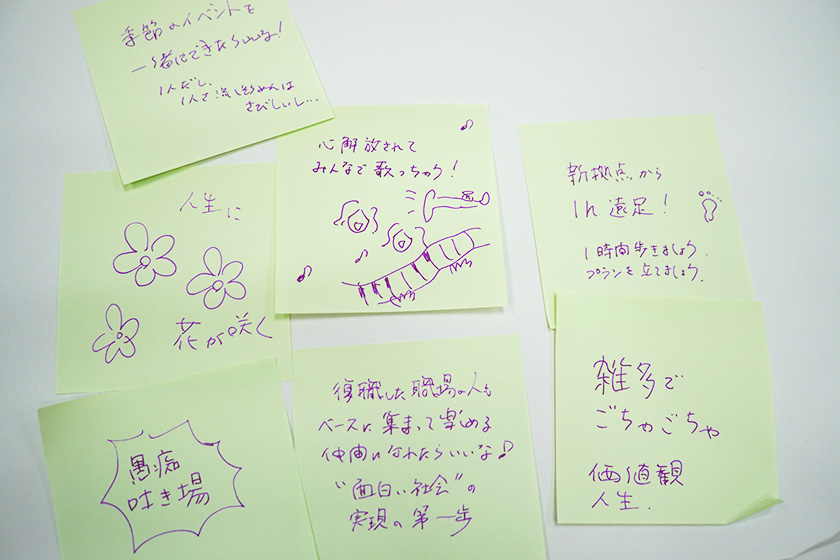 季節のイベントを
一緒にできたらいいな!
1人だし、
1人で流しそうめんは
さびしいし…
心解放されて
みんなで歌っちゃう!
新拠点から
1h 遠足!
1時間歩きましょう.
プランを立てましょう.
人生に
花が咲く
愚痴
吐き場
復職した職場の人も
ベースに集まって楽める
仲間になれたらいいな♪
"面白い社会"の
実現の第一歩
雑多で
ごちゃごちゃ
価値観
人生.